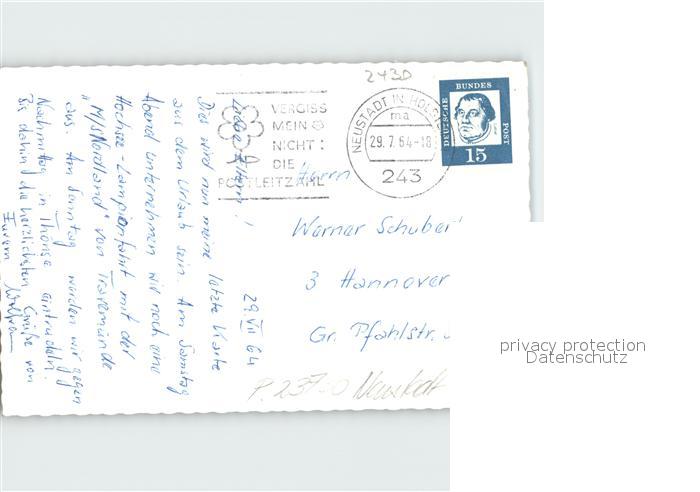 2430
VERGISS
MEIN
NICHT:
DIE
POSTLEITZAHL
NEUSTADT IN HOLST
ma
29.7.64-18
243
DEUTSCHE
BUNDES
POST
15
29.VII 64
Liebe Eltern!
Dies wird nun meine letzte Karte
aus dem Urlaub sein. Am Samstag
Abend unternehmen wir noch eine
Hochsee-Lampionfahrt mit der
"M/s Nordland" von Travemünde
aus. Am Sonntag werden wir gegen
Nachmittag in Thönse eintrudeln.
Bis dahin die herzlichsten Grüße von
Eurem
Herrn
Werner Schubert
3 Hannover
Gr. Pfahlstr.
P. 237-0 Neustadt
privacy protection
Datenschutz